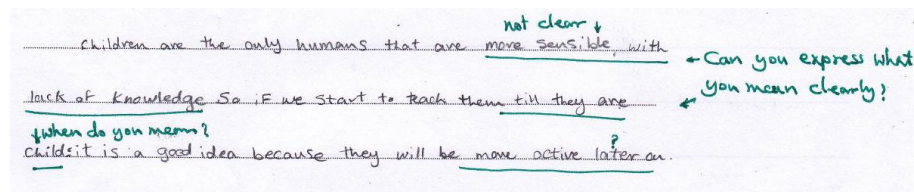 not clear ↓
children are the only humans that are more sensible, with
← Can you express what
you mean clearly?
lack of knowledge So iF we start to teach them till they are
↓ when do you mean?
childs it is a good idea because they will be more active later on.
?